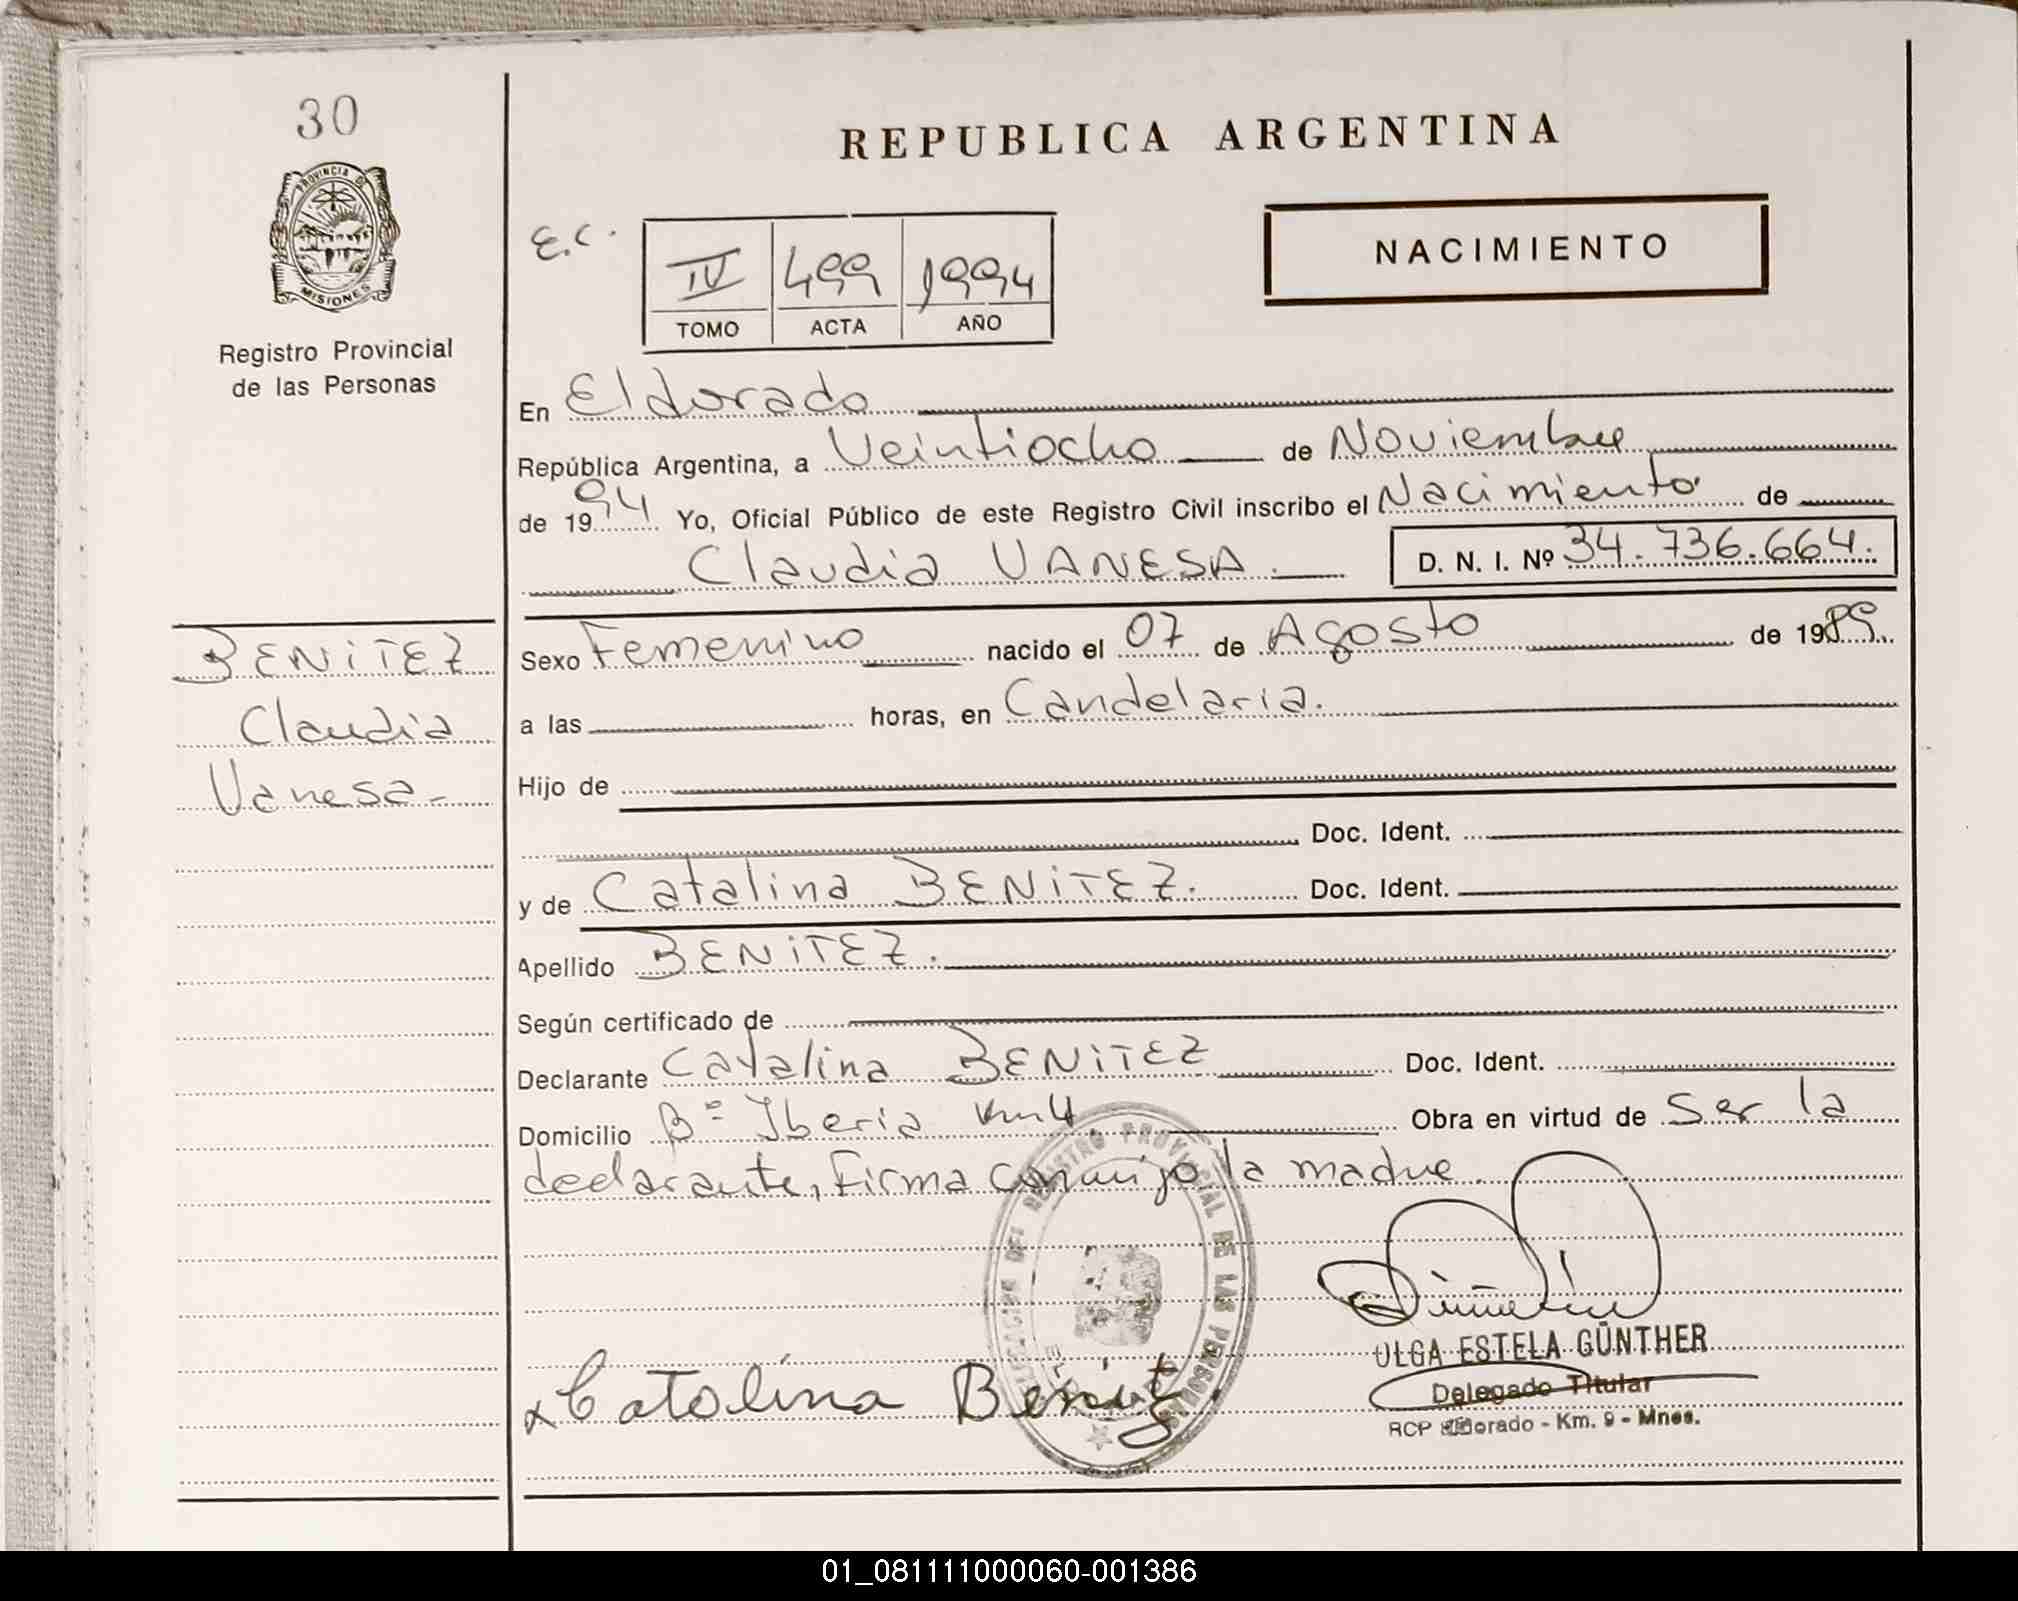 30
PROVINCIA DE
MISIONES
Registro Provincial
de las Personas
REPUBLICA ARGENTINA
E.C.
IV 499 1994
TOMO ACTA AÑO
NACIMIENTO
En Eldorado
República Argentina, a Veintiocho de Noviembre
de 1994 Yo, Oficial Público de este Registro Civil inscribo el Nacimiento de
Claudia VANESA. D. N. I. Nº 34.736.664.
BENITEZ
Claudia
Vanesa-
Sexo Femenino nacido el 07 de Agosto de 1989
a las horas, en Candelaria.
Hijo de
Doc. Ident.
y de Catalina BENITEZ. Doc. Ident.
Apellido BENITEZ.
Según certificado de
Declarante Catalina BENITEZ Doc. Ident.
Domicilio Bº Iberia Km4 Obra en virtud de Ser la
declarante, Firma conmigo la madre.
REGISTRO PROVINCIAL DE LAS PERSONAS
OLGA ESTELA GÜNTHER
Delegado Titular
RCP Eldorado - Km. 9 - Mnes.
x Catolina Benitez
01_081111000060-001386